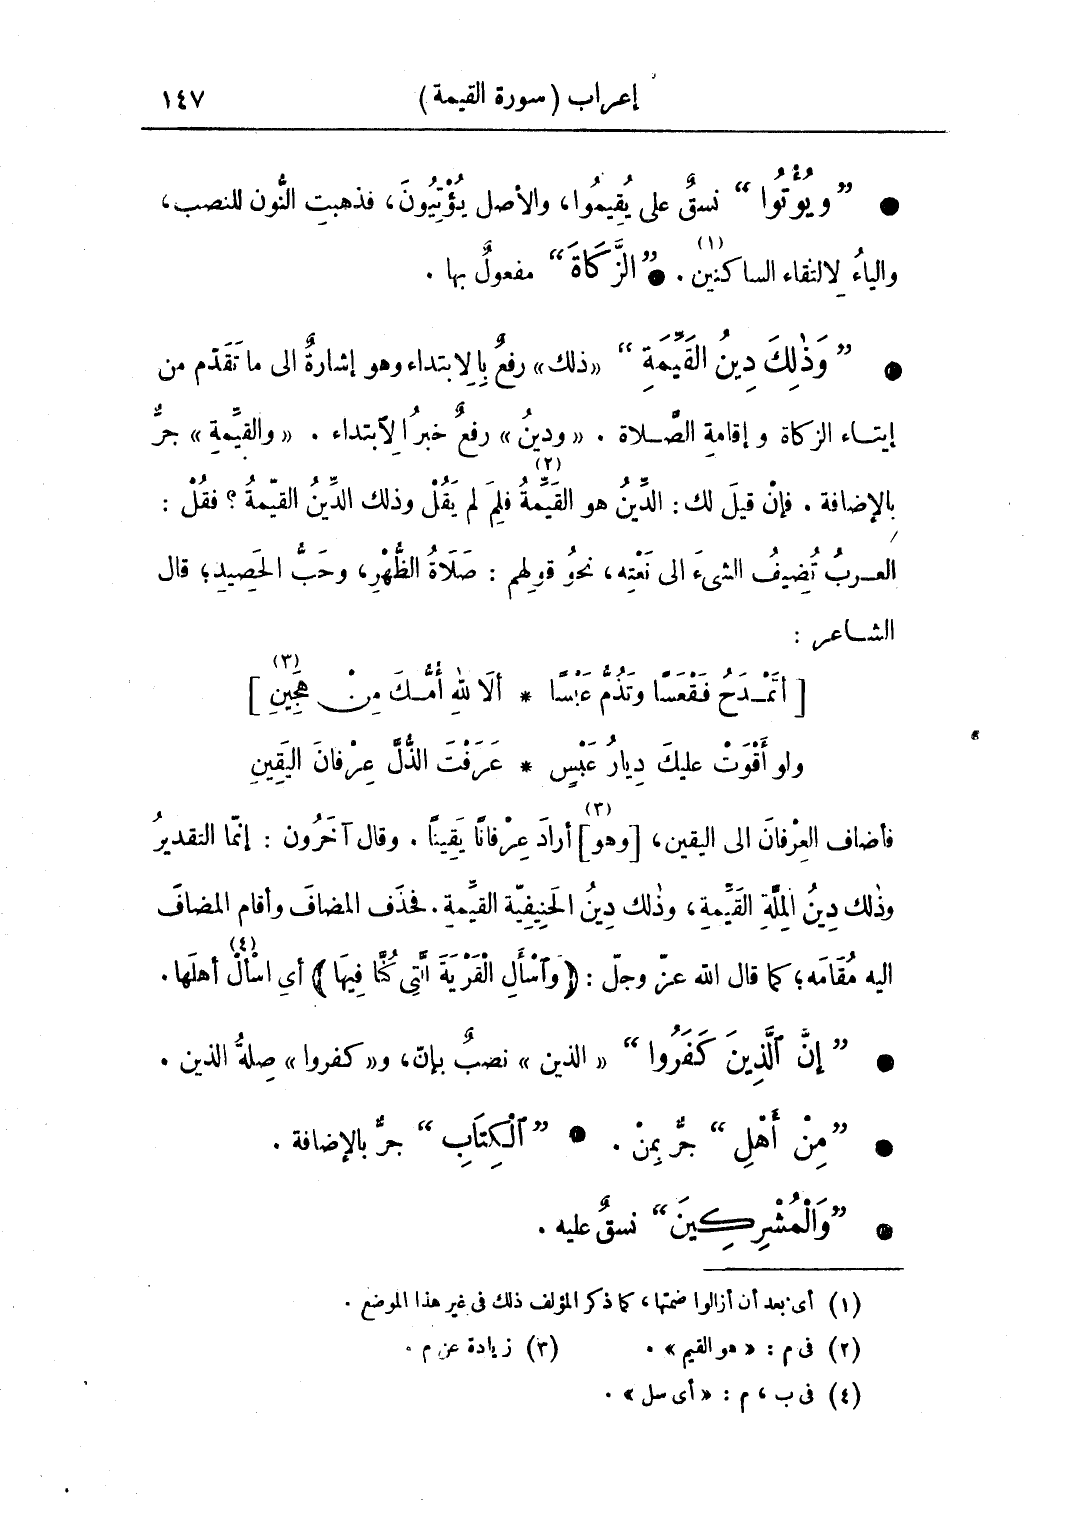 إعراب (سورة القيمة) ١٤٧
● ” وَيُؤْتُوا “ نسقٌ على يُقِيمُوا، والأصل يُؤْتِيُونَ، فذهبتِ النُّون للنصب،
والياءُ لِالتقاء الساكنين(١). ● ” الزَّكَاةَ “ مفعولٌ بها .
● ” وَذٰلِكَ دِينُ القَيِّمَةِ “ «ذلك» رفعٌ بِالِابتداء وهو إشارةٌ الى ما تَقَدّم من
إيتاء الزكاة و إقامةِ الصَّلاة . «ودينُ» رفعٌ خبرُ الِابتداء . «والقيِّمةِ» جرٌّ
بِالإضافة . فإنْ قيلَ لك : الدِّينُ هو القَيِّمةُ(٢) فلِمَ لم يَقُلْ وذلك الدِّينُ القيّمةُ ؟ فقُلْ :
العربُ تُضِيفُ الشىءَ الى نَعْتِه، نحوُ قولهم : صَلَاةُ الظُّهْرِ، وحَبُّ الحَصِيدِ؛ قال
الشاعر :
[ أَتَمْدَحُ فَقْعَسًا وتَذُمُّ عَبْسًا * ألَا للهِ أُمُّكَ مِنْ هَجِينِ(٣) ]
ولو أَقْوَتْ عليكَ دِيارُ عَبْسٍ * عَرَفْتَ الذُّلَّ عِرْفانَ اليَقِينِ
فأضاف العِرْفانَ الى اليقين، [وهو](٣) أرادَ عِرْفانًا يَقِينًا . وقال آخَرُون : إنّما التقديرُ
وذٰلك دِينُ المِلَّةِ القَيِّمةِ، وذٰلك دِينُ الحَنِيفِيّة القيِّمةِ. فحَذَف المضافَ وأقام المضافَ
اليه مُقَامَه؛ كما قال الله عزّ وجلّ : ﴿وَٱسْأَلِ الْقَرْيَةَ الَّتِي كُنَّا فِيهَا﴾ أىِ اسْألْ(٤) أهلَها .
● ” إنَّ ٱلَّذِينَ كَفَرُوا “ « الذين » نصبٌ بإنّ، و« كفروا » صِلةُ الذين .
● ” مِنْ أَهْلِ “ جرٌّ بِمِنْ . ● ” ٱلْكِتَابِ “ جرٌّ بالإضافة .
● ” وَالْمُشْرِكِينَ “ نسقٌ عليه .
(١) أى بعد أن أزالوا ضمتها، كما ذكر المؤلف ذلك فى غير هذا الموضع .
(٢) فى م : « هو القيم » . (٣) زيادة عن م .
(٤) فى ب ، م : « أى سل » .